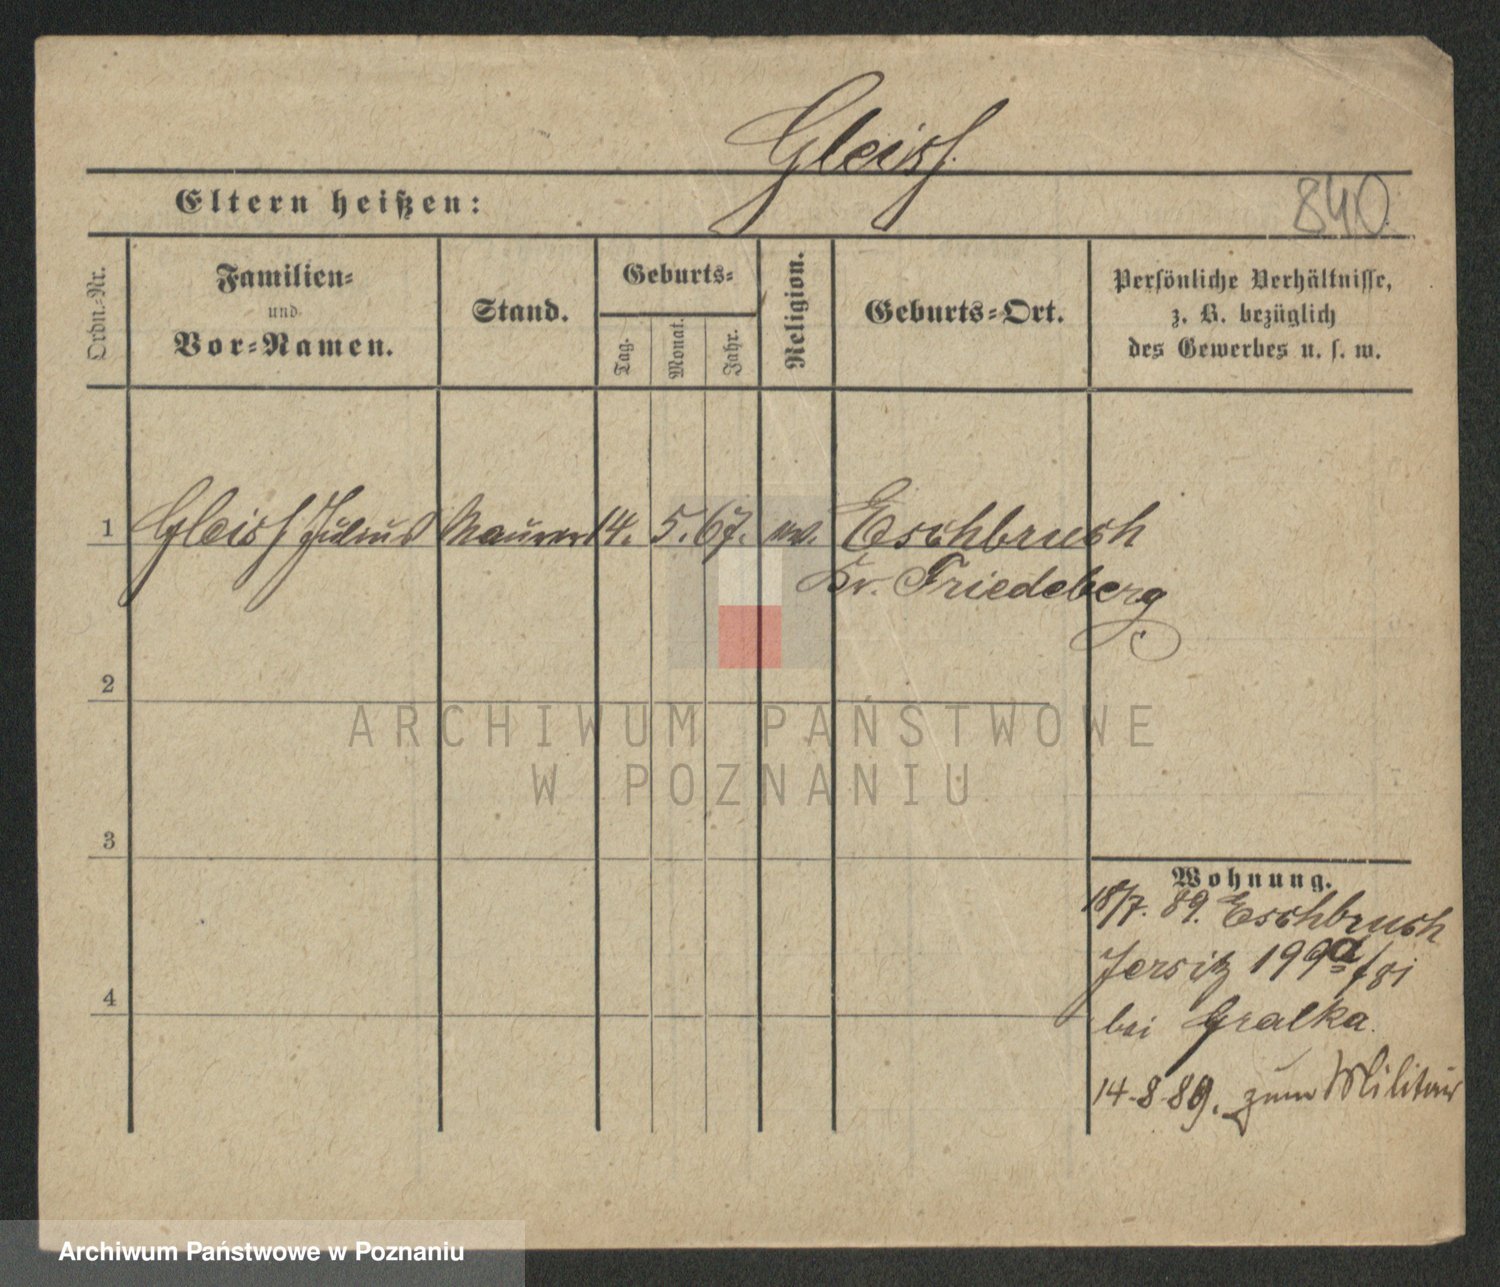 Gleiss.
840
Eltern heißen:
Ordn.-Nr.
Familien-
und
Vor-Namen.
Stand.
Geburts-
Tag.
Monat.
Jahr.
Religion.
Geburts-Ort.
Persönliche Verhältnisse,
z. B. bezüglich
des Gewerbes u. s. w.
1 Gleiss Julius Maurer 14. 5. 67. ev. Eschbruch
Kr. Friedeberg
2
3
4
Wohnung.
18/7. 89. Eschbruch
Jersitz 199a/81
bei Gralka.
14.8.89. zum Militair
ARCHIWUM PAŃSTWOWE
W POZNANIU
Archiwum Państwowe w Poznaniu